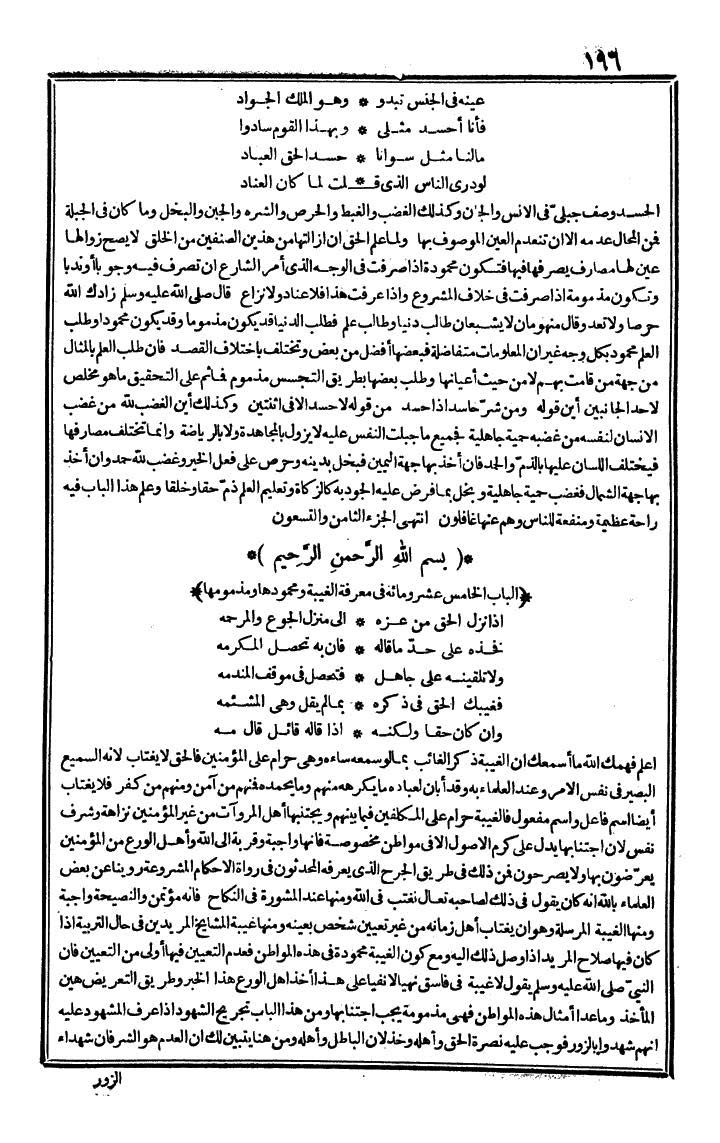 ١٩٦
عينه فى الجنس تبدو * وهو الملك الجواد
فأنا أحسد مثلى * وبهذا القوم سادوا
مالنا مثل سوانا * حسد الحق العباد
لو درى الناس الذى قـ * ـلت لما كان العناد
الحسد وصف جبلىّ فى الانس والجان وكذلك الغضب والغبط والحرص والشره والجبن والبخل وما كان فى الجبلة
فمن المحال عدمه الا ان تنعدم العين الموصوف بها ولما علم الحق ان ازالتها من هذين الصنفين من الخلق لا يصح زوالها
عين لها مصارف يصرفها فيها فتكون محمودة اذا صرفت فى الوجه الذى أمر الشارع ان تصرف فيه وجوبا أو ندبا
وتكون مذمومة اذا صرفت فى خلاف المشروع واذا عرفت هذا فلا عناد ولا نزاع قال صلى الله عليه وسلم زادك الله
حرصا ولا تعد وقال منهومان لا يشبعان طالب دنيا وطالب علم فطلب الدنيا قد يكون مذموما وقد يكون محمودا وطلب
العلم محمود بكل وجه غير ان المعلومات متفاضلة فبعضها أفضل من بعض وتختلف باختلاف القصد فان طلب العلم بالمثال
من جهة من قامت بهم لا من حيث أعيانها وطلب بعضها بطريق التجسس مذموم فما ثم على التحقيق ما هو مخلص
لاحد الجانبين أين قوله ومن شرّ حاسد اذا حسد من قوله لا حسد الا فى اثنتين وكذلك أين الغضب لله من غضب
الانسان لنفسه من غضبه حمية جاهلية فجميع ما جبلت النفس عليه لا يزول بالمجاهدة ولا بالرياضة وانما تختلف مصارفها
فيختلف اللسان عليها بالذمّ والحمد فان أخذ بها جهة اليمين فبخل بدينه وحرص على فعل الخير وغضب لله حمد وان أخذ
بها جهة الشمال فغضب حمية جاهلية وبخل بما فرض عليه الجود به كالزكاة وتعليم العلم ذمّ حقا وخلقا وعلم هذا الباب فيه
راحة عظيمة ومنفعة للناس وهم عنها غافلون انتهى الجزء الثامن والتسعون
*( بسم الله الرَّحمن الرَّحيم )*
*(الباب الخامس عشر ومائة فى معرفة الغيبة ومحمودها ومذمومها)*
اذا نزل الحق من عزه * الى منزل الجوع والمرحمه
فخذه على حدّ ما قاله * فان به تحصل المكرمه
ولا تلقينه على جاهل * فتحصل فى موقف المندمه
فغيبك الحق فى ذكره * بما لم يقل وهى المشئمه
وان كان حقا ولكنه * اذا قاله قائل قال مه
اعلم فهمك الله ما أسمعك ان الغيبة ذكر الغائب بما لو سمعه ساءه وهى حرام على المؤمنين فالحق لا يغتاب لانه السميع
البصير فى نفس الامر وعند العلماء به وقد أبان لعباده ما يكرهه منهم وما يحمده فمنهم من آمن ومنهم من كفر فلا يغتاب
أيضا اسم فاعل واسم مفعول فالغيبة حرام على المكلفين فيما بينهم ويجتنبها أهل المروآت من غير المؤمنين نزاهة وشرف
نفس لان اجتنابها يدل على كرم الاصول الا فى مواطن مخصوصة فانها واجبة وقربة الى الله وأهل الورع من المؤمنين
يعرّضون بها ولا يصرحون فمن ذلك فى طريق الجرح الذى يعرفه المحدثون فى رواة الاحكام المشروعة روينا عن بعض
العلماء بالله انه كان يقول فى ذلك لصاحبه تعال نغتب فى الله ومنها عند المشورة فى النكاح فانه مؤتمن والنصيحة واجبة
ومنها الغيبة المرسلة وهو ان يغتاب أهل زمانه من غير تعيين شخص بعينه ومنها غيبة المشايخ المريدين فى حال التربية اذا
كان فيها صلاح المريد اذا وصل ذلك اليه ومع كون الغيبة محمودة فى هذه المواطن فعدم التعيين فيها أولى من التعيين فان
النبىّ صلى الله عليه وسلم يقول لا غيبة فى فاسق نهيا لا نفيا على هذا أخذ اهل الورع هذا الخبر وطريق التعريض هين
المأخذ وما عدا أمثال هذه المواطن فهى مذمومة يجب اجتنابها ومن هذا الباب تجريح الشهود اذا عرف المشهود عليه
انهم شهدوا بالزور فوجب عليه نصرة الحق وأهله وخذلان الباطل وأهله ومن هنا يتبين لك ان العدم هو الشر فان شهداء
الزور